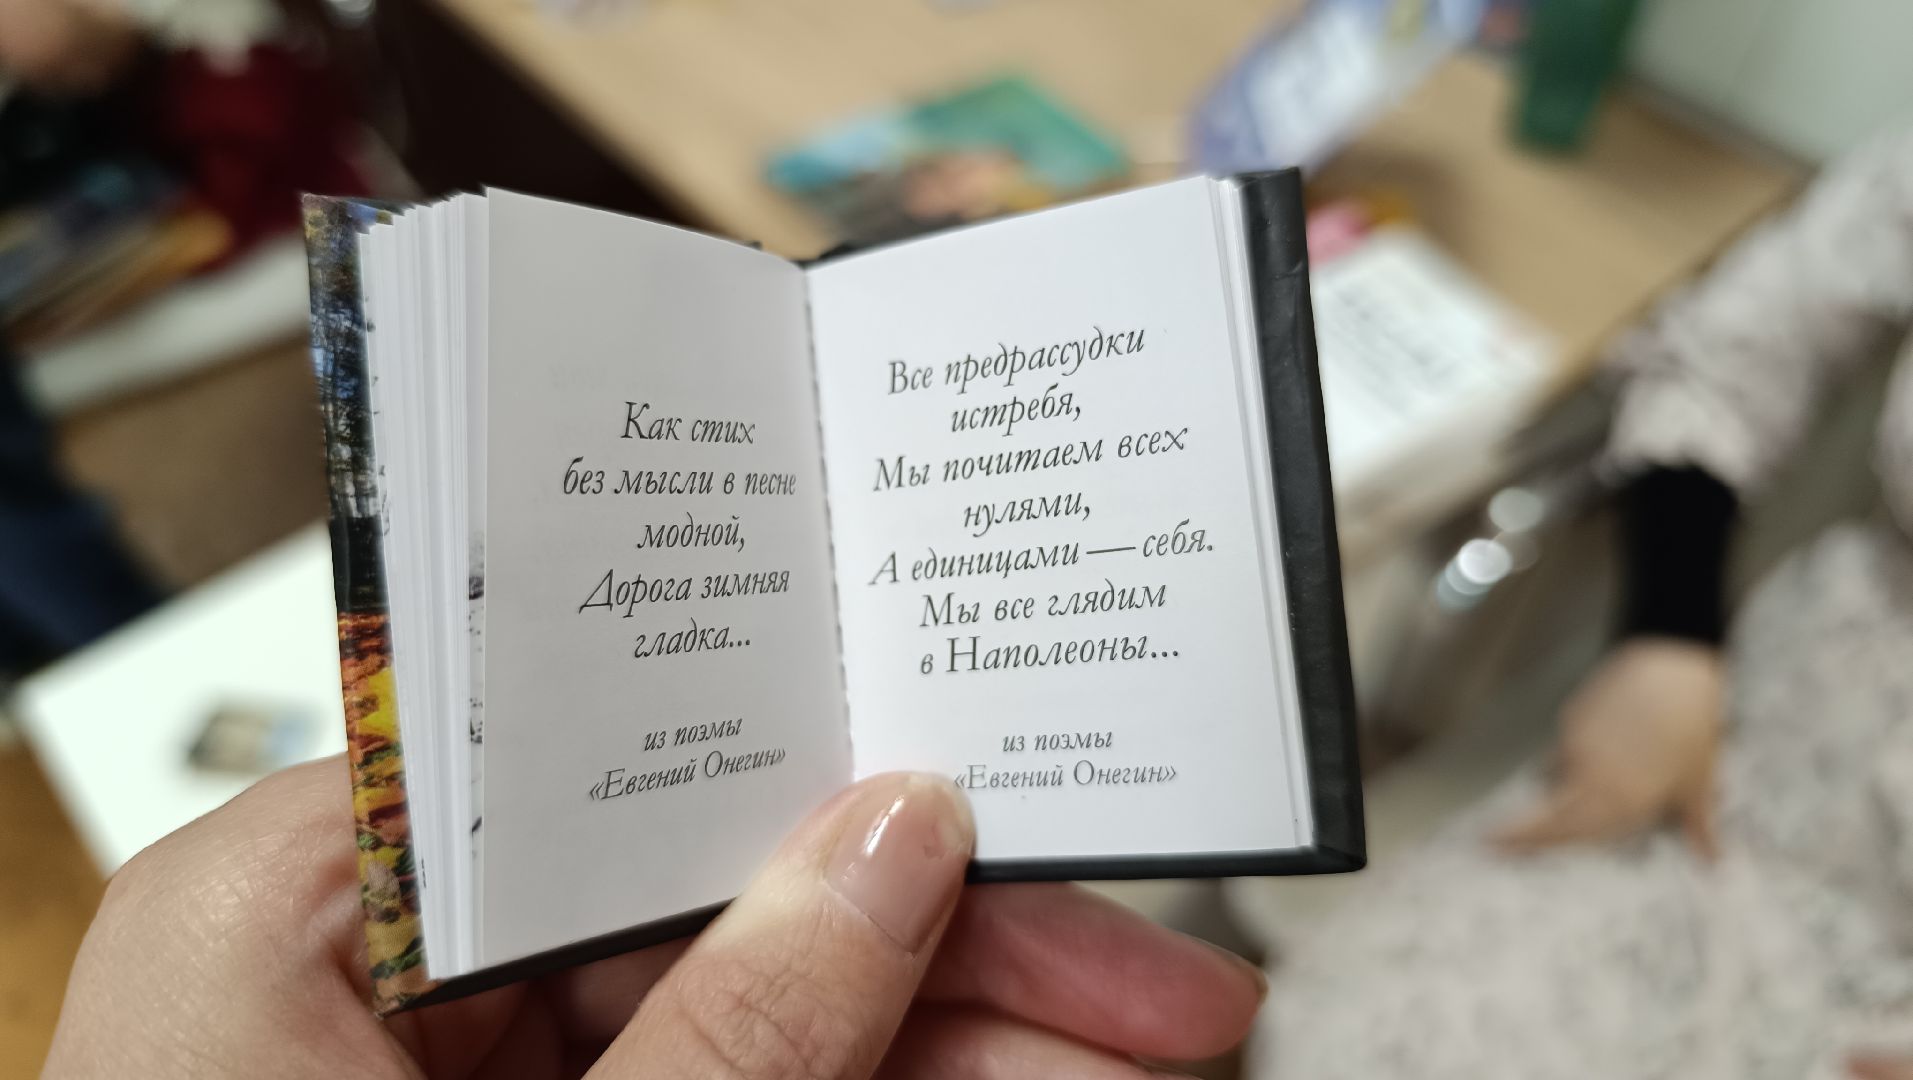 Как стих
без мысли в песне
модной,
Дорога зимняя
гладка...
из поэмы
«Евгений Онегин»
Все предрассудки
истребя,
Мы почитаем всех
нулями,
А единицами — себя.
Мы все глядим
в Наполеоны...
из поэмы
«Евгений Онегин»